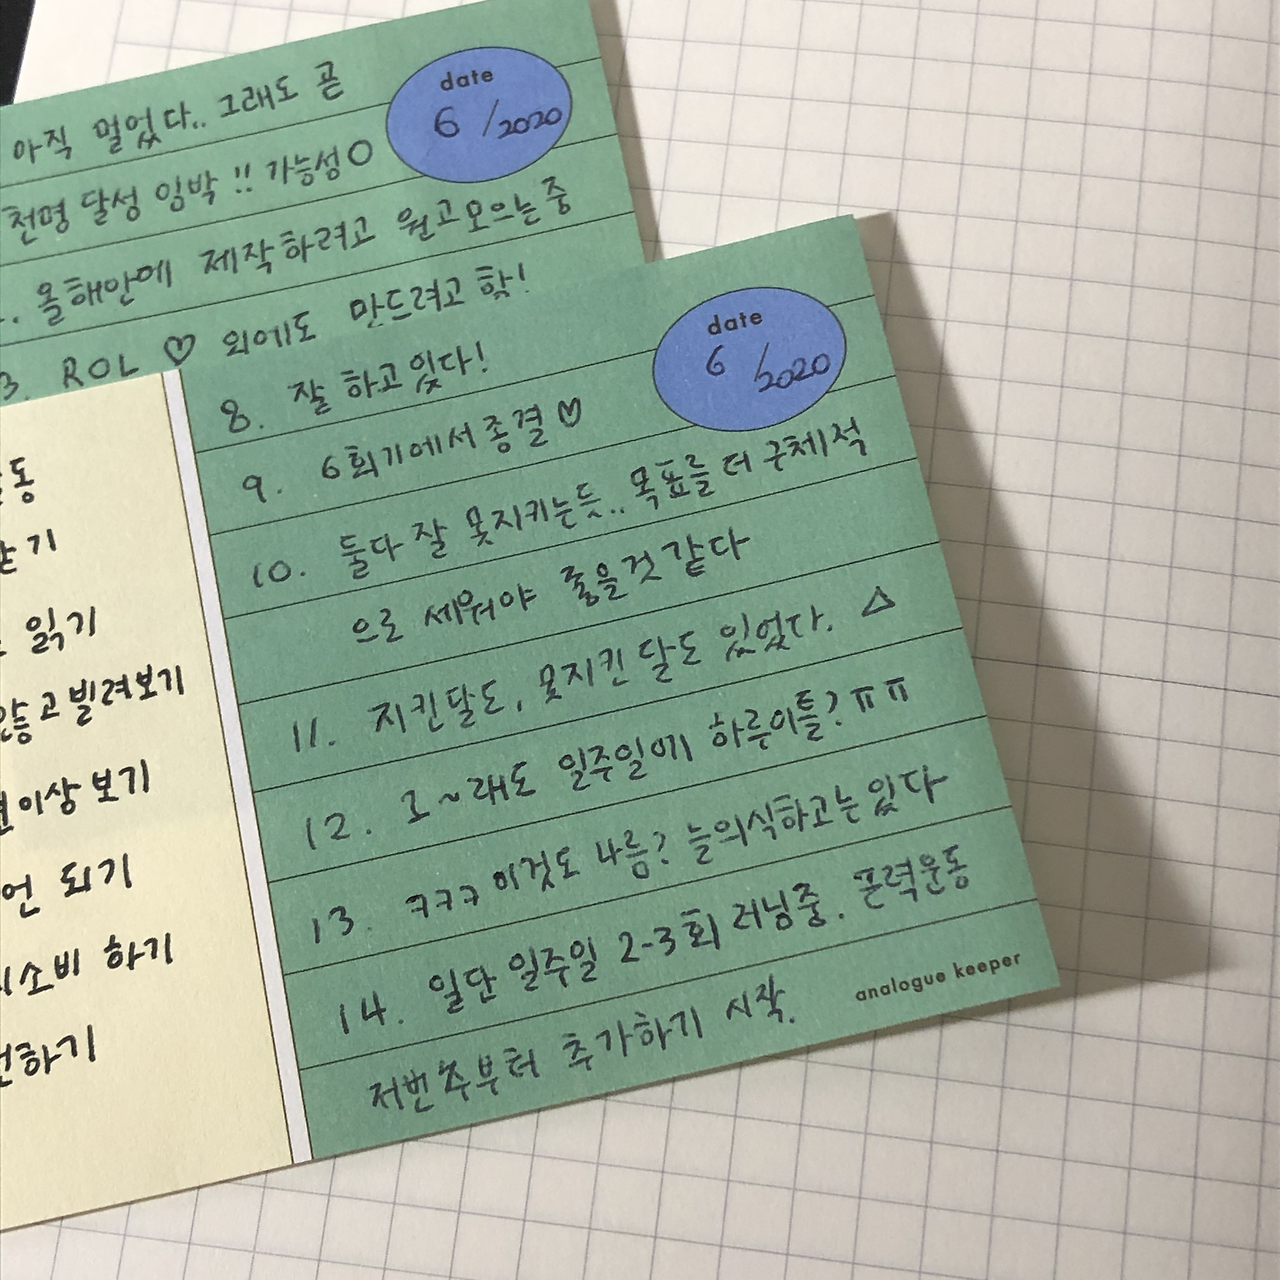 아직 멀었다.. 그래도 곧
date
6 / 2020
천명 달성 임박!! 가능성O
올해안에 제작하려고 원고모으는중
3. ROL ♡ 외에도 만드려고 함!
date
6 / 2020
8. 잘 하고있다!
9. 6회기에서 종결♡
10. 둘다 잘 못지키는듯.. 목표를 더 구체적
으로 세워야 좋을것 같다
11. 지킨달도, 못지킨 달도 있었다. △
12. 그~래도 일주일에 하루이틀? ㅠㅠ
13. ㅋㅋㅋ 이것도 나름? 늘의식하고는 있다
14. 일단 일주일 2-3회 러닝중. 근력운동
저번주부터 추가하기 시작.
analogue keeper
동
기
읽기
않고 빌려보기
이상 보기
언 되기
소비 하기
하기